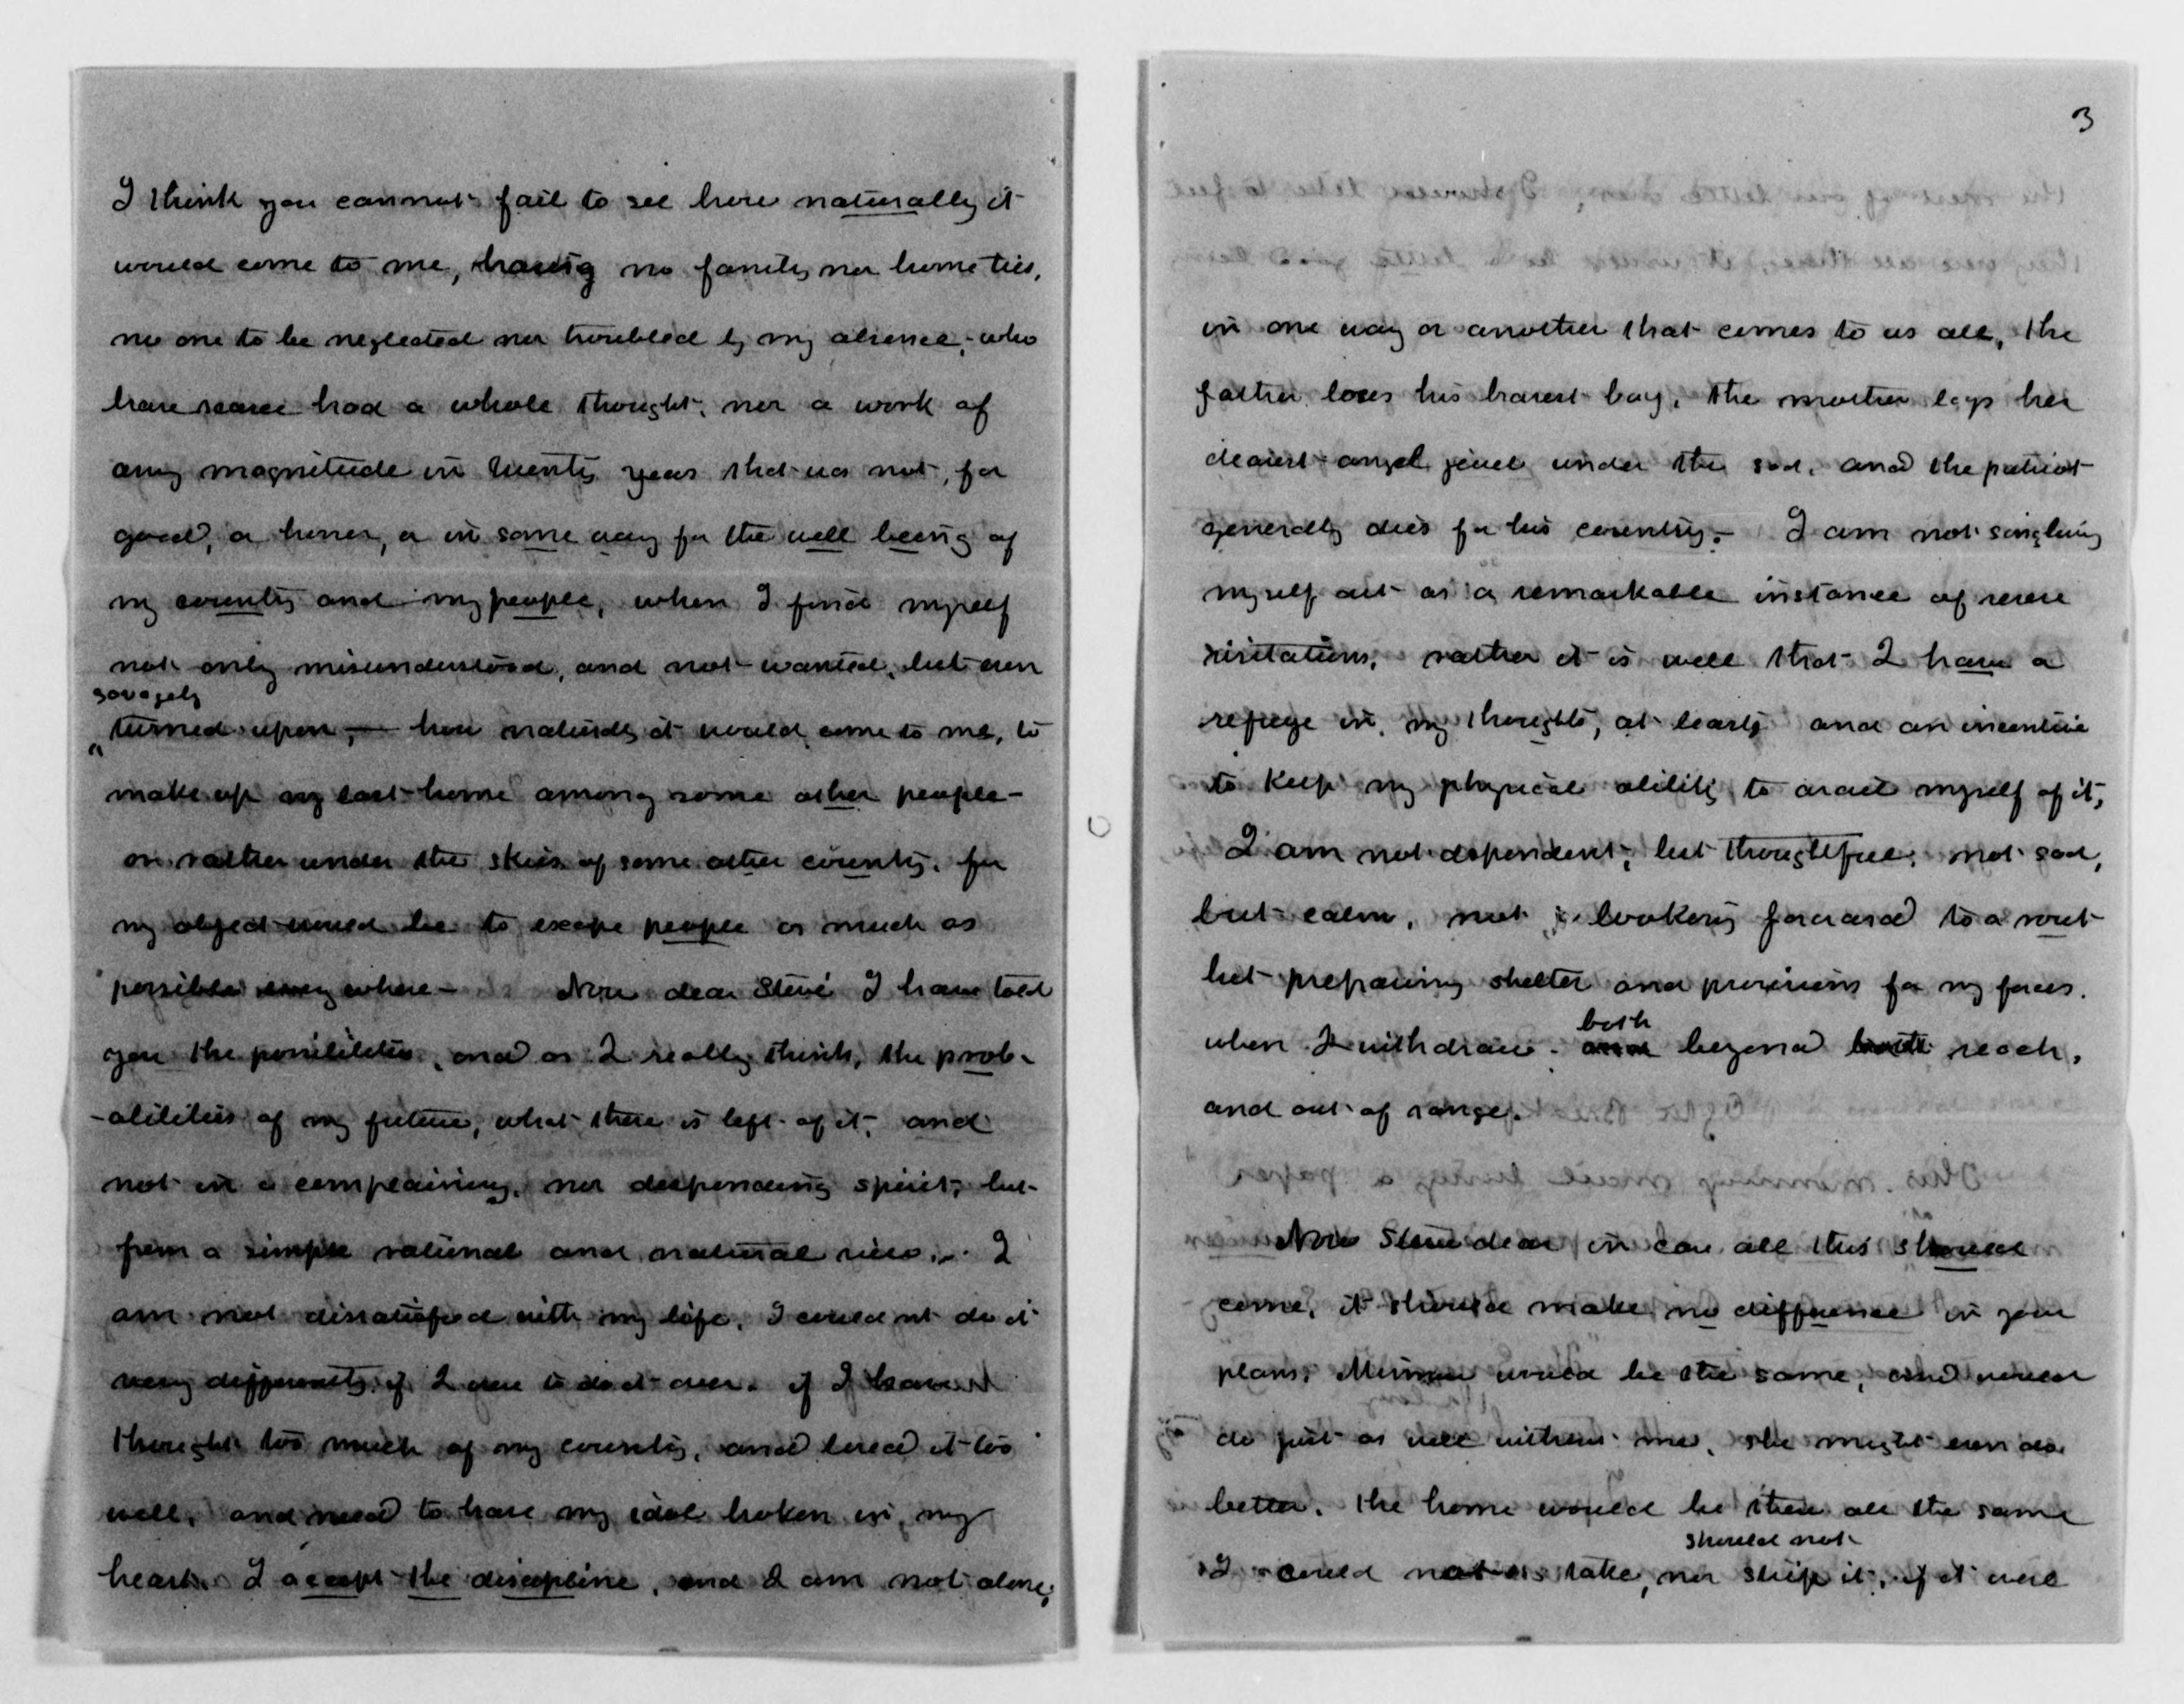 I think you cannot fail to see how naturally it
would come to me, having no family nor home ties,
no one to be neglected nor troubled by my absence, who
have scarce had a whole thought, nor a work of
any magnitude in twenty years that was not, for
good, or honor, or in some way for the well being of
my country and my people, when I find myself
not only misunderstood, and not wanted, but even
savagely
turned upon, — how naturally it would come to me, to
make up my last home among some other people –
or rather under the skies of some other country, for
my object would be to escape people as much as
possible every where – Now dear Steve I have told
you the possibilities, and as I really think, the prob-
-abilities of my future, what there is left of it, and
not in a complaining, nor desponding spirit, but
from a simple rational and natural view. I
am not dissatisfied with my life, I could nt do it
very differently if I were to do it over. if I have
thought too much of my country, and loved it too
well, and need to have my idol broken in my
heart. I accept the discipline, and I am not alone,
3
in one way or another that comes to us all, the
father loses his bravest boy, the mother lays her
dearest angel jewel under the sod, and the patriot
generally dies for his country. – I am not singling
myself out as a remarkable instance of severe
visitations, rather it is well that I have a
refuge in my thoughts, at least, and an incentive
to keep my physical ability to avail myself of it,
I am not dspondent, but thoughtful, not sad,
but calm, not looking forward to a rout
but preparing shelter and provisions for my forces.
both
when I withdraw. and beyond both reach,
and out of range.
Now Steve dear in case all this should
come, it should make no difference in your
plans, Mimme would be the same, and would
do just as well without me, she might even do
better. the home would be there all the same
should not
I could not take, nor ship it, if it were